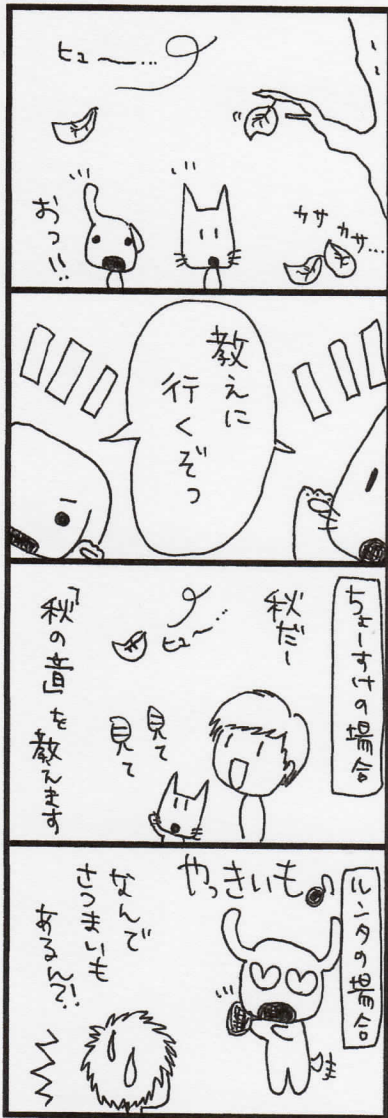 ヒュ〜…
カサ
カサ…
おっ!!
教えに
行くぞっ
ちょーすけの場合
秋だー
ヒュ〜…
見て
見て
「秋の音」を教えます
ルンタの場合
やっきいも♪
なんで
さつまいも
あるん?!